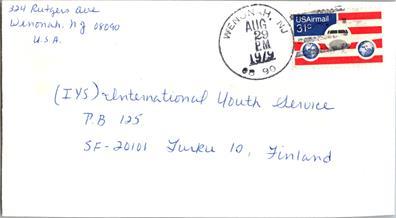 324 Rutgers Ave
Wenonah, NJ 08090
U.S.A.
WENONAH, NJ
AUG
29
PM
1979
080 90
USAirmail
31c
(IYS) International Youth Service
P.B 125
SF-20101 Turku 10, Finland